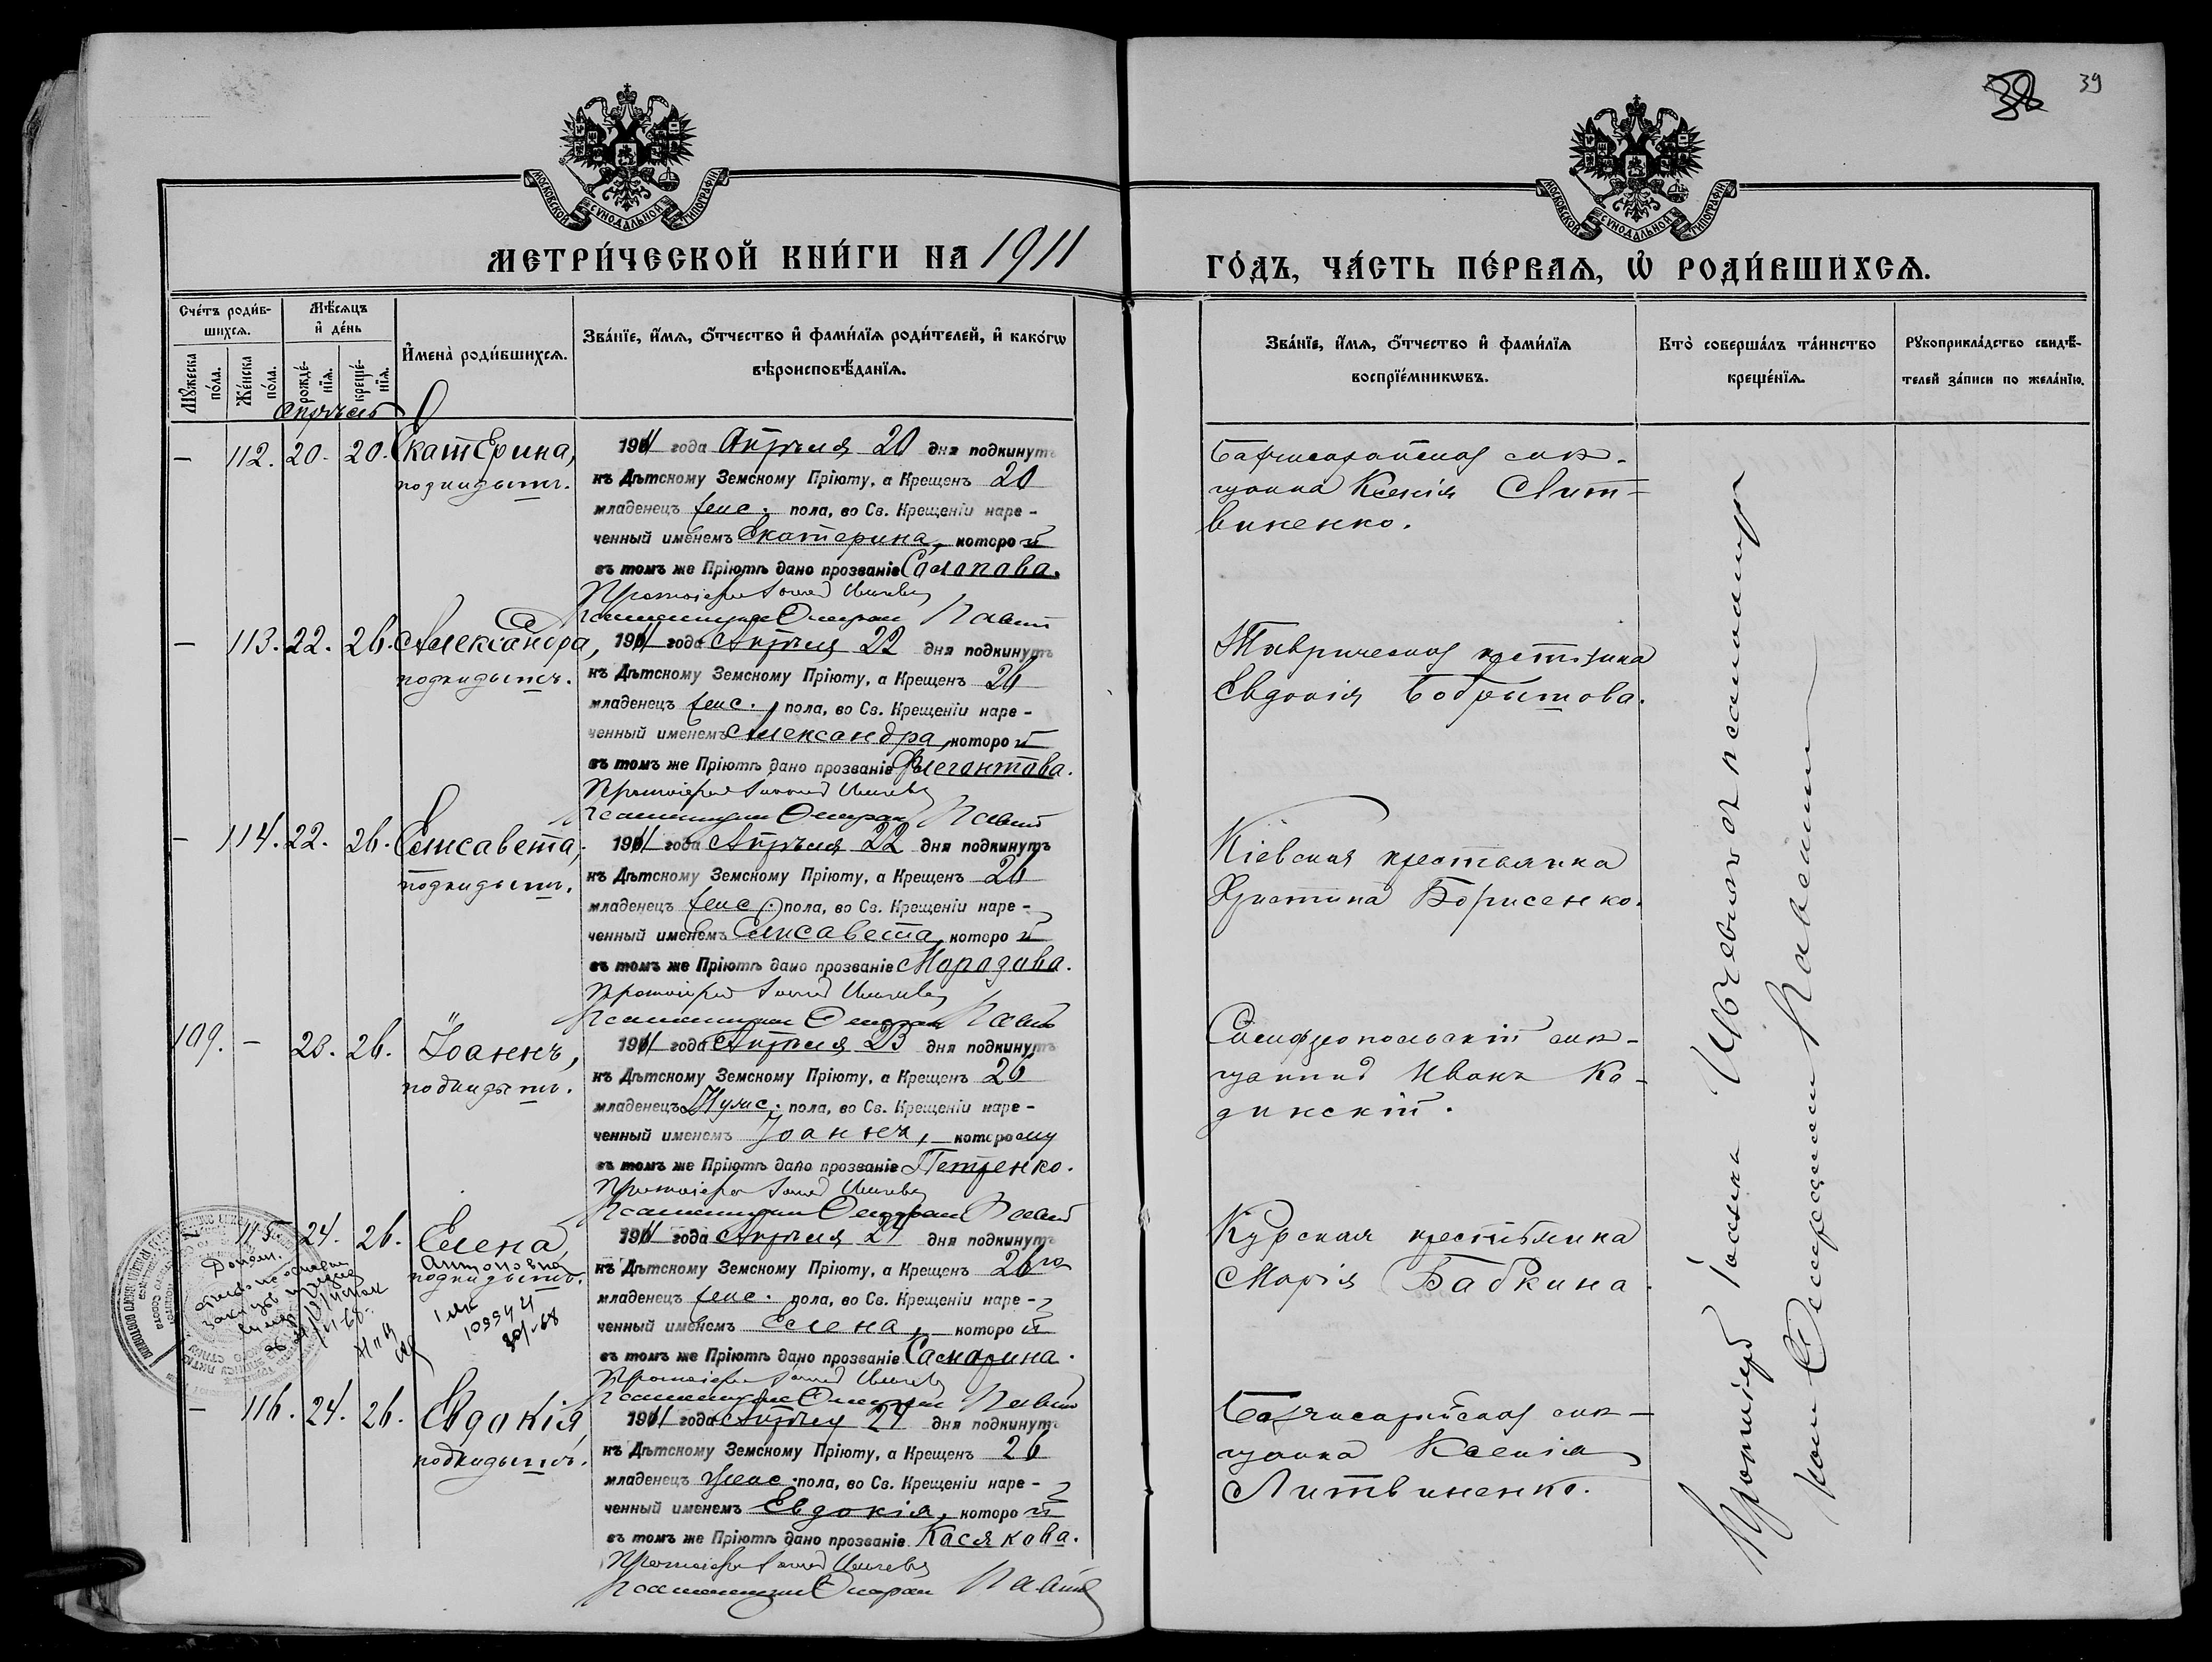 38 39
МОСКОВСКОЙ СѴНОДАЛЬНОЙ ТИПОГРАФІИ
МОСКОВСКОЙ СѴНОДАЛЬНОЙ ТИПОГРАФІИ
МЕТРИ́ЧЕСКОЙ КНИ́ГИ НА 1911
ГО́ДЪ, ЧА́СТЬ ПЕ́РВАѦ, Ѽ РОДИ́ВШИХСѦ.
Счетъ роди́в-
шихсѧ.
Мꙋжеска
по́ла.
Же́нска
по́ла.
Мѣ́сѧцъ
и҆ де́нь
рожде́-
нїѧ.
креще́-
нїѧ.
И҆мена̀ роди́вшихсѧ.
Зва́нїе, и҆́мѧ, ѻ҆́тчество и҆ фами́лїѧ роди́телей, и҆ како́гѡ
вѣроисповѣ́данїѧ.
Зва́нїе, и҆́мѧ, ѻ҆́тчество и҆ фами́лїѧ
воспрїе́мникѡвъ.
Кто̀ соверша́лъ та́инство
креще́нїѧ.
Рꙋкоприкла́дство свидѣ́-
телей за́писи по жела́нїю.
Апрѣль
— 112. 20. 20. Екатерина,
подкидышъ.
1911 года Апрѣля 20 дня подкинутъ
къ Дѣтскому Земскому Пріюту, а Крещенъ 20
младенецъ женс. пола, во Св. Крещеніи наре-
ченный именемъ Екатерина, которой
въ томъ же Пріютѣ дано прозваніе Салопова.
Протоіерей
Псаломщикъ
Бахчисарайская мѣ-
щанка Ксенія Лит-
виненко.
— 113. 22. 26. Александра,
подкидышъ.
1911 года Апрѣля 22 дня подкинутъ
къ Дѣтскому Земскому Пріюту, а Крещенъ 26
младенецъ женс. пола, во Св. Крещеніи наре-
ченный именемъ Александра, которой
въ томъ же Пріютѣ дано прозваніе Флегонтова.
Протоіерей
Псаломщикъ
Таврическая крестьянка
Евдокія Бобрышова.
— 114. 22. 26. Елисавета,
подкидышъ.
1911 года Апрѣля 22 дня подкинутъ
къ Дѣтскому Земскому Пріюту, а Крещенъ 26
младенецъ женс. пола, во Св. Крещеніи наре-
ченный именемъ Елисавета, которой
въ томъ же Пріютѣ дано прозваніе Морозова.
Протоіерей
Псаломщикъ
Кіевская крестьянка
Христина Борисенко.
109. — 23. 26. Іоаннъ,
подкидышъ.
1911 года Апрѣля 23 дня подкинутъ
къ Дѣтскому Земскому Пріюту, а Крещенъ 26
младенецъ Мужс. пола, во Св. Крещеніи наре-
ченный именемъ Іоаннъ, которому
въ томъ же Пріютѣ дано прозваніе Петренко.
Протоіерей
Псаломщикъ
Симферопольскій мѣ-
щанинъ Иванъ Ка-
динскій.
115. 24. 26. Елена,
Антоновна
подкидышъ.
1911 года Апрѣля 24 дня подкинутъ
къ Дѣтскому Земскому Пріюту, а Крещенъ 26го
младенецъ женс. пола, во Св. Крещеніи наре-
ченный именемъ Елена, которой
въ томъ же Пріютѣ дано прозваніе Самарина.
Протоіерей
Псаломщикъ
Курская крестьянка
Марія Бабкина.
— 116. 24. 26. Евдокія,
подкидышъ.
1911 года Апрѣля 24 дня подкинутъ
къ Дѣтскому Земскому Пріюту, а Крещенъ 26
младенецъ женс. пола, во Св. Крещеніи наре-
ченный именемъ Евдокія, которой
въ томъ же Пріютѣ дано прозваніе Касякова.
Протоіерей
Псаломщикъ
Бахчисарайская мѣ-
щанка Ксенія
Литвиненко.
Протоіерей Іоаннъ съ псаломщи-
комъ